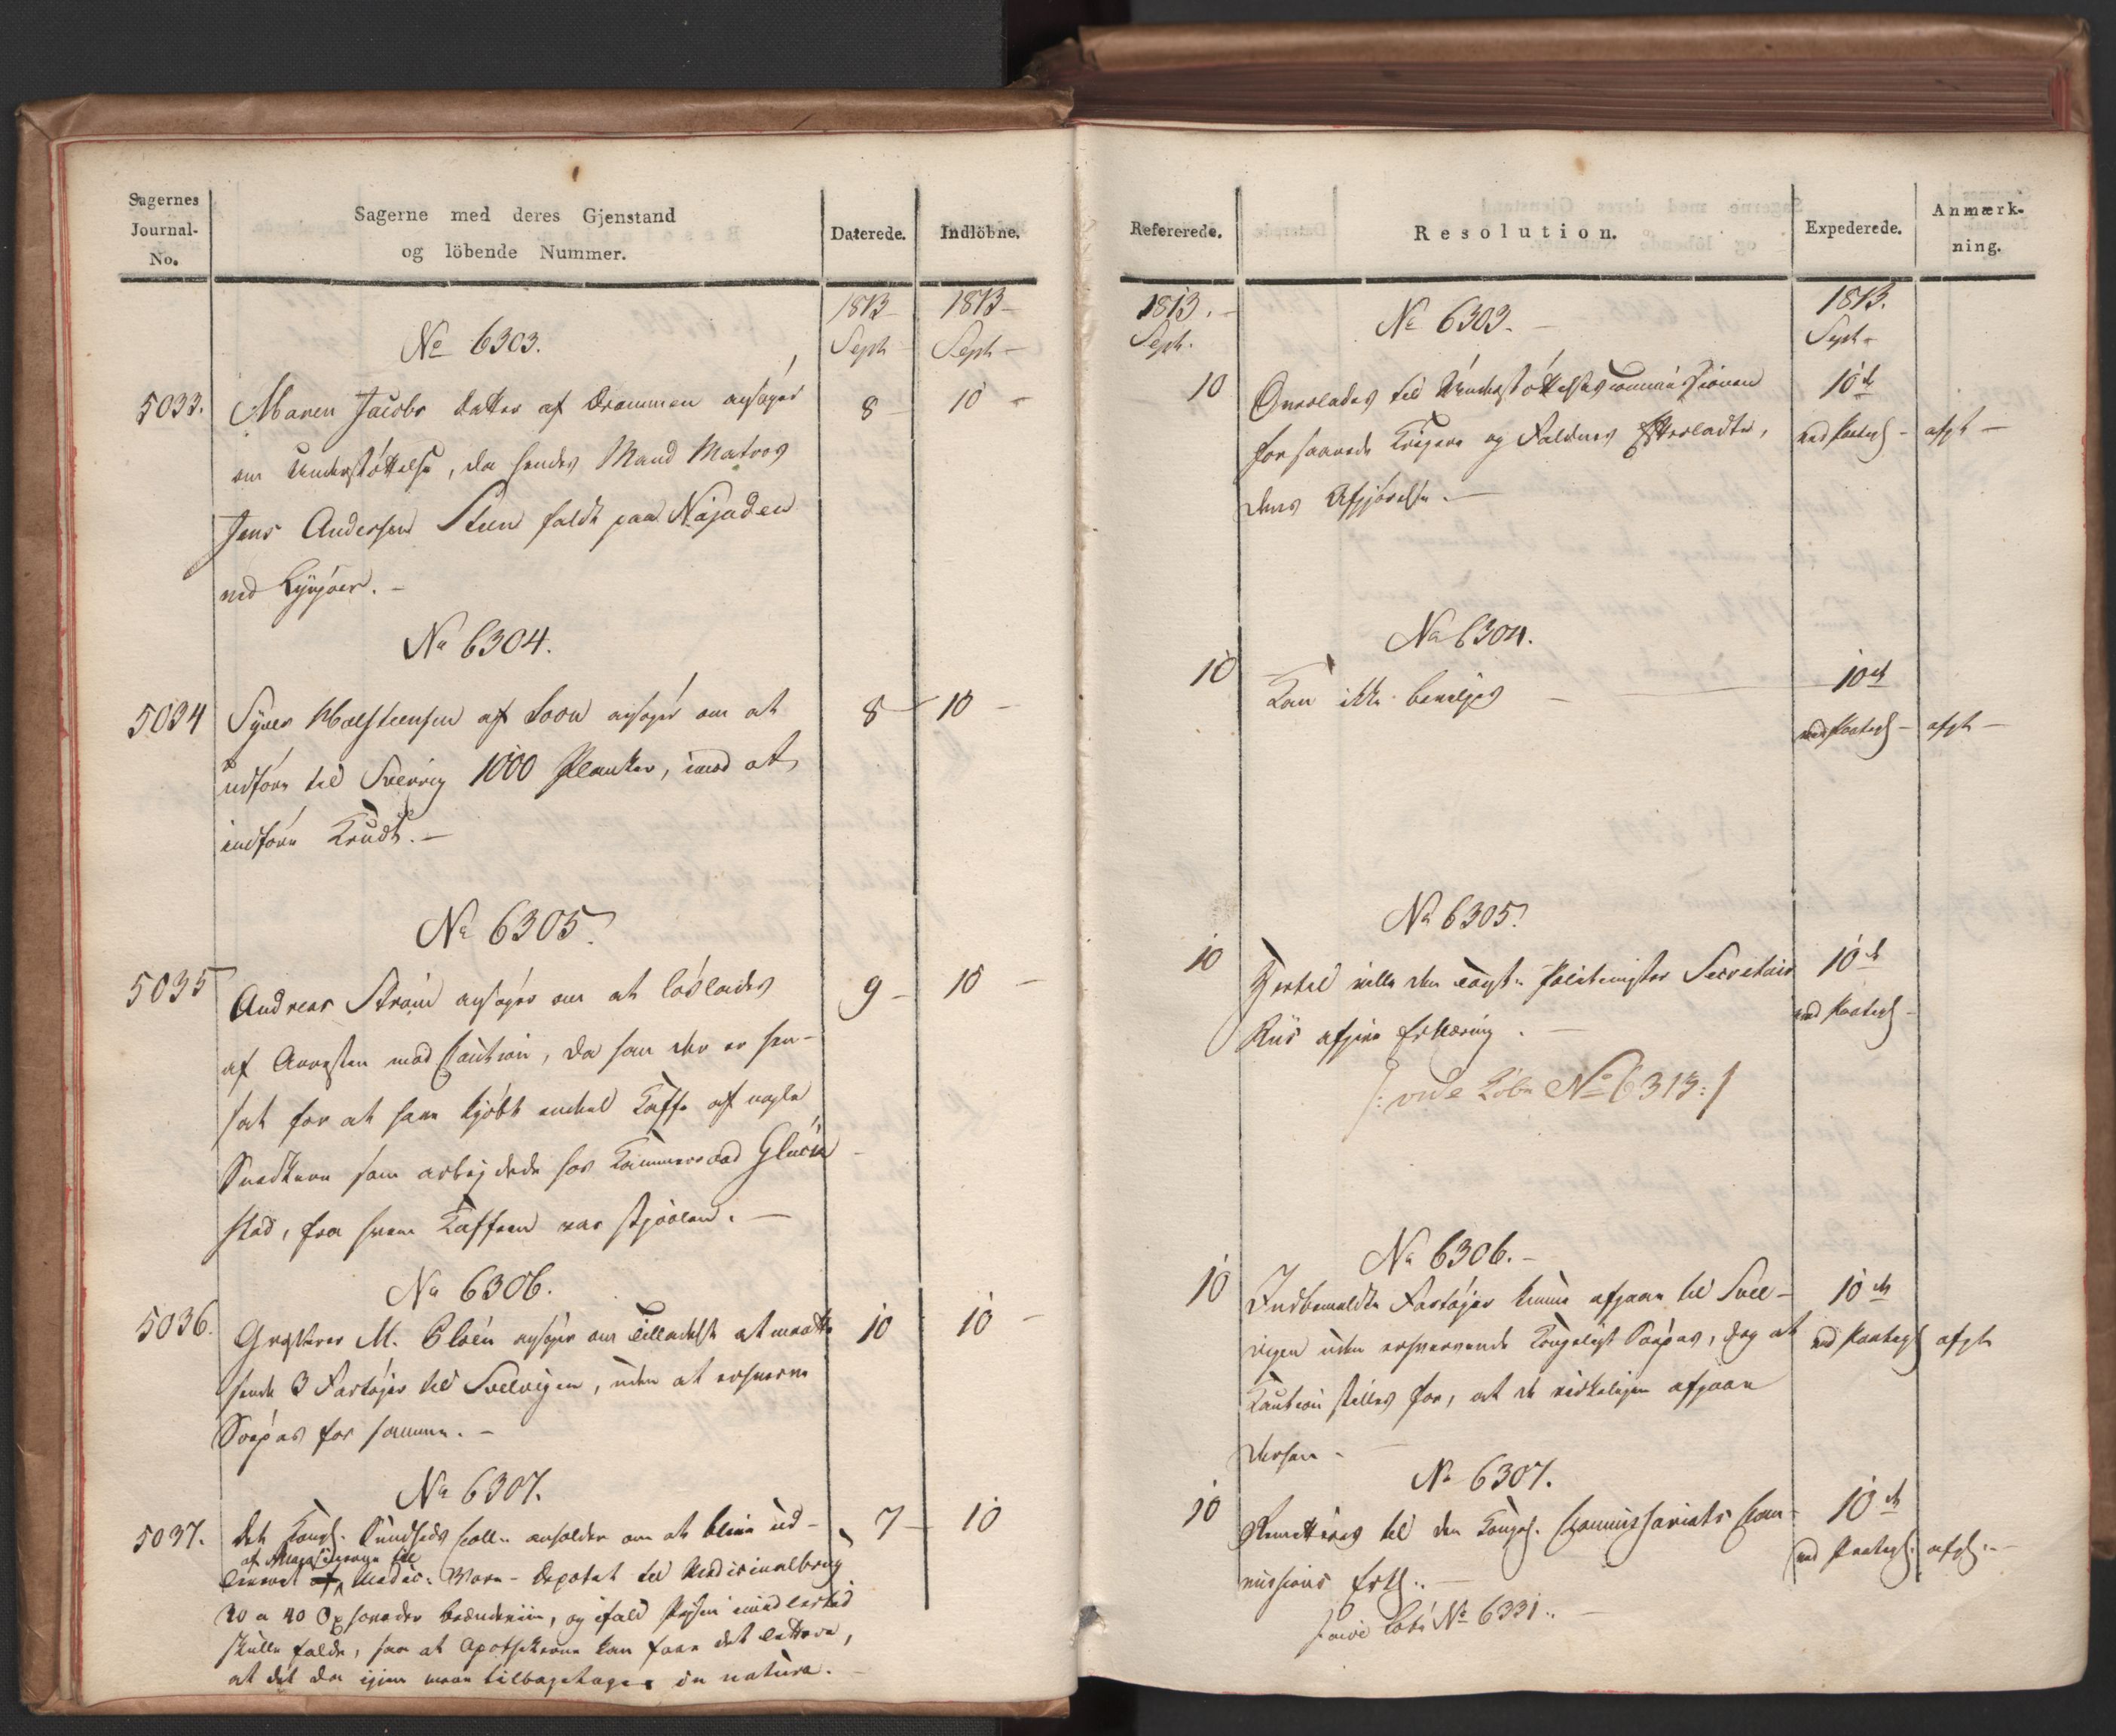 Sagernes
Journal-
No.
Sagerne med deres Gjenstand
og löbende Nummer.
Daterede.
Indlöbne.
1813
Sept
1813
Sept
No 6303.
5033.
Maren Jacobs datter af Drammen ansøger
om Understøttelse, da hendes Mand Matros
Jens Andersen Steen faldt paa Najaden
ved Lyngøer.
8
10
No 6304.
5034
Syver Halsteensen af Soon ansøger om at
udføre til Sverrig 1000 Planker, imod at
indføre Krudt.
8
10
No 6305.
5035
Andreas Strøm ansøger om at løslades
af Arresten mod Caution, da han der er hen-
sat for at have kjøbt endeel Kaffe af nogle
Snedkere som arbejdede hos Kammerraad Glück
stad, fra hvem Kaffeen var stjaalen.
9
10
No 6306.
5036.
Grosserer M. Pløen ansøger om Tilladelse at maatte
sende 3 Fartøjer til Svelvigen, uden at erhverve
Søepas for samme.
10
10
No 6307.
5037.
Det Kongl. Sundheds Coll. anholder om at blive ud-
af Magazinerne til
leveret af Medic: Vare-Depotet til Medicinalbrug
30 a 40 Oxhoveder Brændeviin, og ifald Prisen imidlertid
skulle falde, saa at Apothekerne kan faae det lettere,
at det da igjen maae tilbagetages in natura.
7
10
Refererede.
Resolution.
Expederede.
Anmærk-
ning.
1813.
Sept.
1813.
Sept.
No 6303.
10
Overlades til Understøttelsescommissionen
for saarede Krigere og Faldnes Efterladte,
dens Afgjørelse.
10de
ved Paategn
afgt
No 6304.
10
Kan ikke bevilges
10de
ved Paategn
afgt
No 6305.
10
Hertil ville den const. Politimester Secretair
Riis afgive Erklæring.
/: vide Løbe No 6313:/
10de
ved Paategn
No 6306.
10
Indbemeldte Fartøjer kunne afgaae til Svel-
vigen uden erhvervende Kongeligt Søepas, dog at
Caution stilles for, at de virkeligen afgaae
derhen
10de
ved Paategn
afgt
No 6307.
10
Remitteres til den Kongel. Commissariats Com-
missions Erkl.
/: vide Løbe No 6331:/
10de
ved Paategn.
afgt.